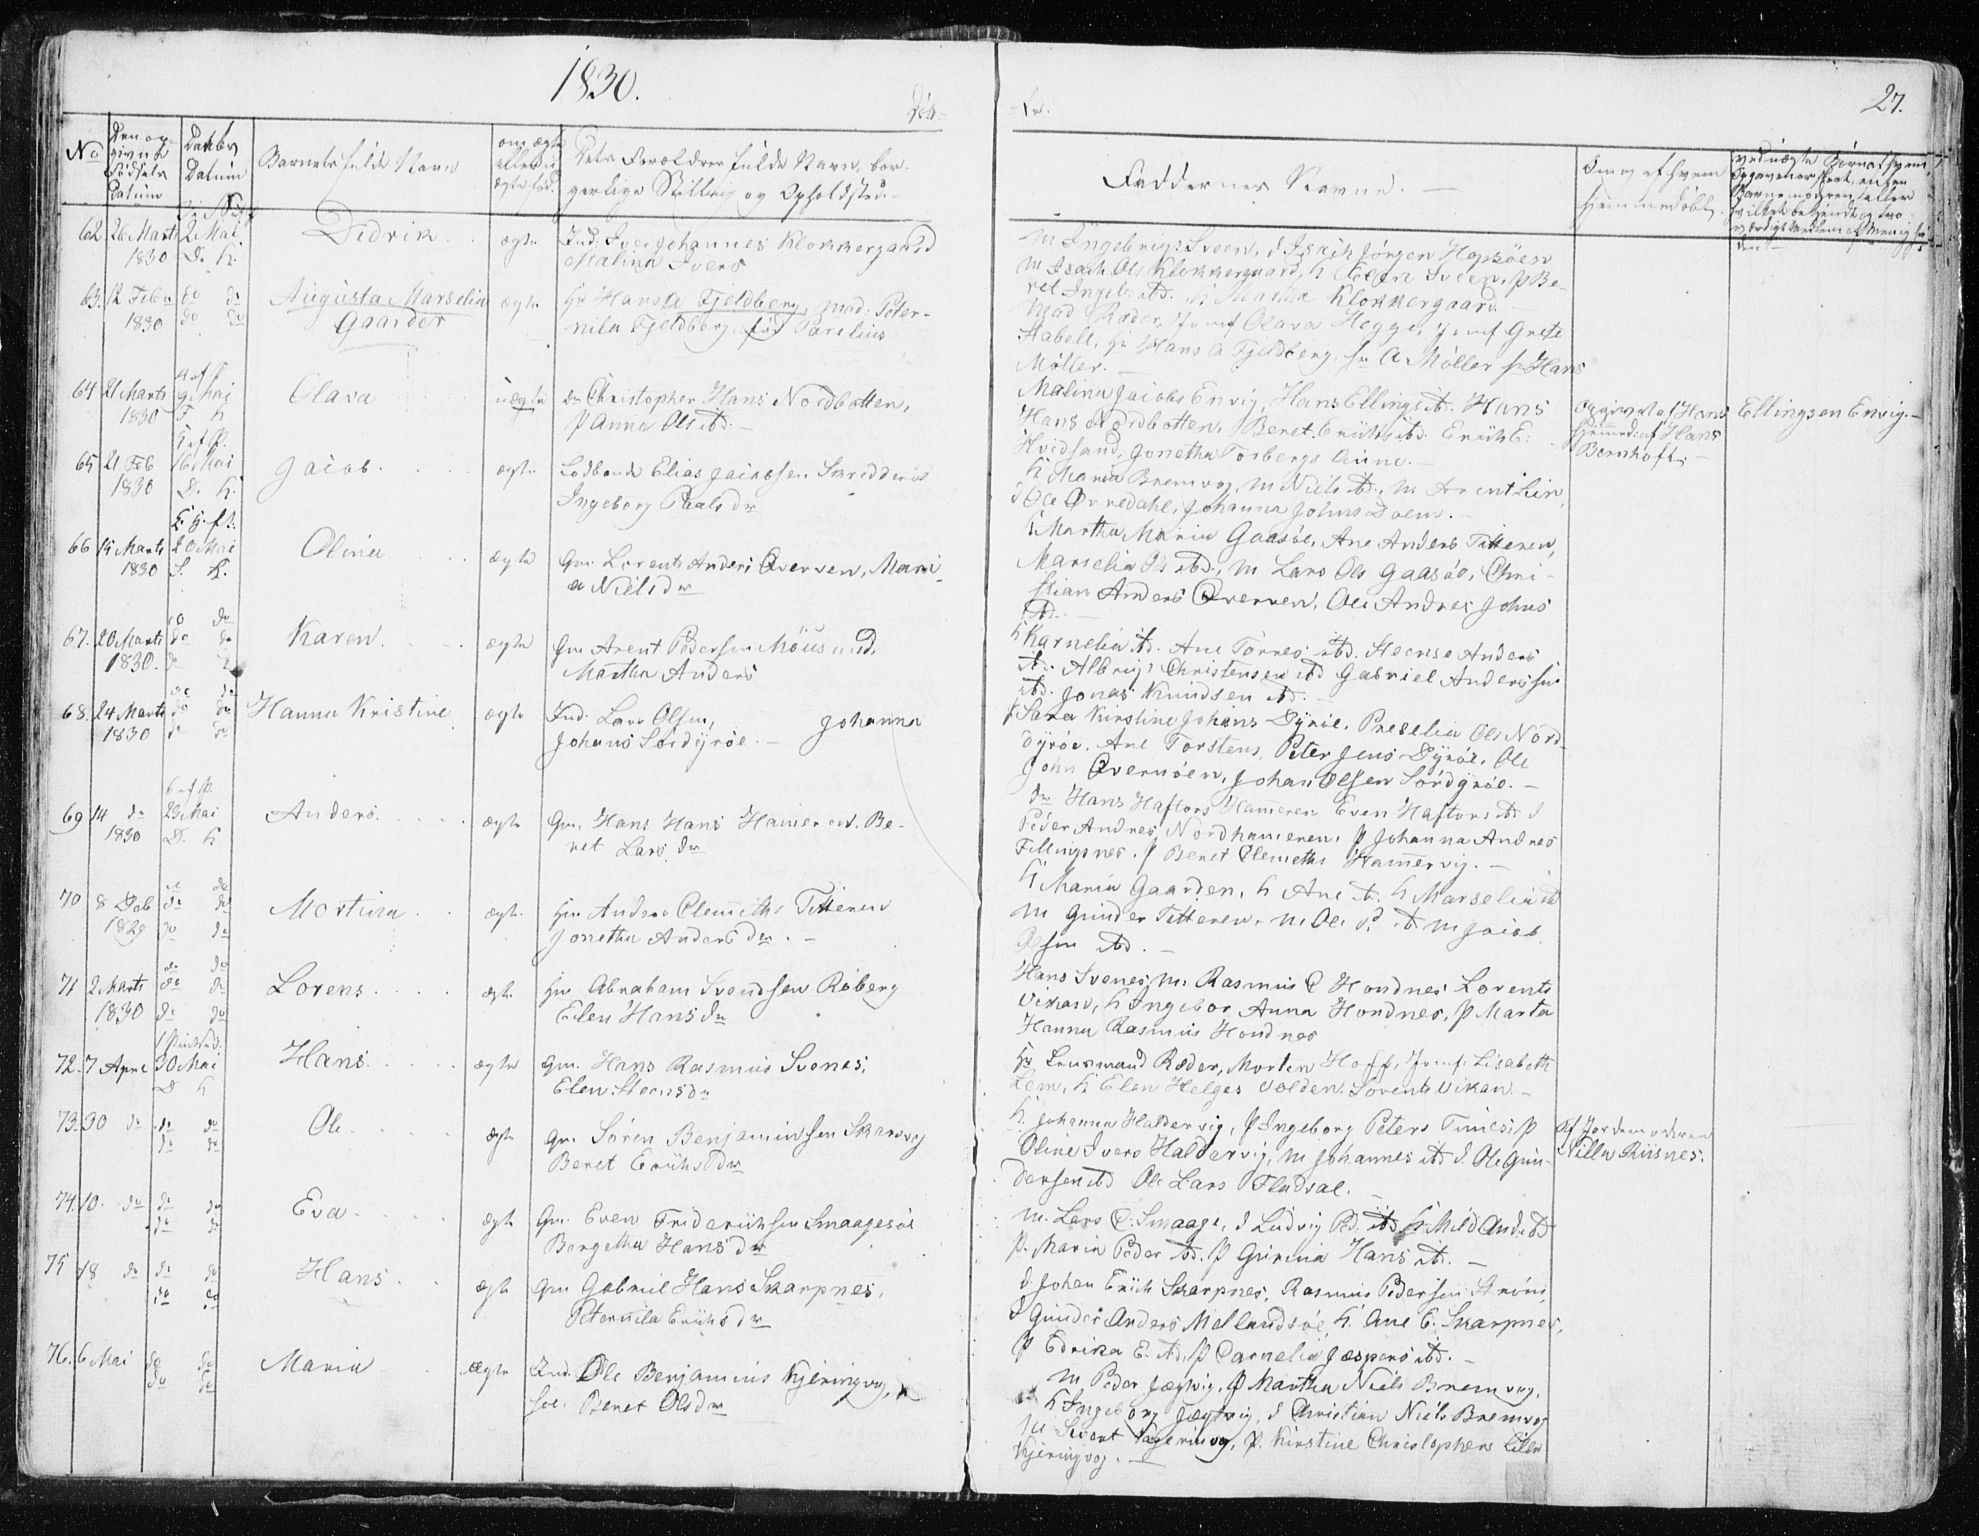 1830.
Døb-
-te.
27.
No
Den op-
givne
Fødsels
Datum
Daabs
Datum
Barnets fulde Navn
om ægte
eller u
ægte fød.
Dets Forældres fulde Navn, bor-
gerlige Stilling og Opholdsted.
Faddernes Navne. —
Om og af hvem
hjemmedøbt.
62 26 Marts 2 Mai Didrik . . ægte Ind. Iver Johannes Klokkergaard
1830 D. K. Malina Ivers
m Ingebrigt Sveen, d Isach Jørgen Hopsøesv
m Isach Ols Klokkergaard, K Elen Sveen, p Be-
ret Ingeb. itd. K Martha Klokkergaard
63. 12 Febr do do Augusta Marselia ægte Hr Hans A Fjeldberg, mad. Peter-
1830 do do Gaarder nila Fjeldberg, fød Parelius
Mad Røder, Jomf Olava Hegge, Jomf Grete
Aabell, Hr Hans A Fjeldberg, hr A Møller hr Hans
Møller. —
64 21 Marts 9 Mai Olava uægte Christopher Hans Nordbotten,
1830 F K p Anne Ols itd. —
Malina Jacobs Envig, Hans Ellings itd. Hans
Hans Nordbotten, Beret Erichs itd. Erich E.
Hvidsand, Jonetha Torbergs Aune. —
Opgivet af Hans Ellingsen Envig. —
hjemmed: af Hans
Bernhoft. —
65 21 Feb 16 Mai Jacob. ægte Lodbonde Elias Jacobsen
1830 D. K. Ingeborg Paals dr
K Maria Bremvog, m Niels itd., m Arent Lien
d Ole Ørnedahl, Johanna Johns Doem. —
66 15 Marts 20 Mai Olina ægte Gm. Lorents Anders Qverven, Mari-
1830 S. K. a Niels dr
K Martha Maria Gaasøe, Ane Anders Titteren,
Marselia Ols itd., m Lars Ols Gaasøe, Chri-
stian Anders Qverven, Ole Andreas Johns
itd. —
67. 20 Marts do do Karen. ægte Gm Arent Pedersen
1830. Martha Anders
K Karnelia itd. Ane Torres itd. Anders
itd. Albrigt Christensen itd Gabriel Anderssen
itd. Jonas Knudsen itd. —
68. 24 Marts do do Hanna Kristine ægte Ind. Lars Olsen, Johanna
1830 Johans Sørdyrøe. —
p Sara Kirstine Johans Dyrøe, Preselia Ols Nord-
dyrøe, Ane Torstens, Peter Jens Dyrøe, Ole
John Qvernøen, Johan Olsen Sørdyrøe. —
69 14 do 23 Mai Anders. ægte Gm. Hans Hans Hameren. Be-
1830 D. K ret Lars dr
Hans Haftors Hameren Even Haftors itd d
Peder Andreas Nordhameren, p Johanna Andreas
Fillingsnes, p Beret Clemeths Hamervig. —
70 8 Deb do do Mortina ægte Hm Anders Clemeths Titteren
1829 do do Jonetha Anders dr. —
K Maria Gaarden, K Ane itd. K Marselia itd
m Gunder Titteren, m Ole P. itd m Jacob
Olsen itd. —
71 2 Marts do do Lorens ægte Hm Abraham Svendsen Roberg
1830 do do Elen Hans dr
Hans Svenes, m. Rasmus C Hondnes Lorents
Vikan, K Ingebor Anna Hondnes, p Marta
Hanna Rasmus Hondnes
72. 7 Apre 30 Mai Hans. ægte Gm. Hans Rasmus Svenes,
D K Elen dr
Hr Lensmand Røder, Morten Hoff, Jomf. Lisabeth
Lem, K Elen Helges Volden. Lorents Vikan. —
73. 30 do do do Ole. ægte Gm. Søren Benjaminsen
do do Beret Erichs dr
K. Johanna Haldorvig, p Ingeborg Peters p
Oline Ivers Haldorvig, m Johannes itd d. Ole Gun-
dersen itd Ole Lars Fludsæl. —
Af Jordemoderen
Nilla Riisnes.
74. 10. do do do Eva ægte Gm. Even Friderichsen Smaagesøe
do do Bergetha Hans dr
m. Lars C. Smaage, d Ludvig itd
p. Maria Peder itd. p Gurina Hans itd. —
75 18 do do do Hans ægte Gm Gabriel Hans Skarpnes,
do do Peternila Erichs dr
d. Johan Erich Skarpnes, Rasmus Pedersen Strøm,
d Gunder Anders Mellandsøe, K. Ane E. Skarpnes,
p Edrika E. itd, p Carnelia Jespers itd. —
76. 6 Mai do do Maria ægte Ind. Ole Benjamins Kjeringvog,
do do Beret Ols dr
m Peder Jægtvig, p Martha Niels Bremvog,
K Ingeborg Jægtvig, d Christian Niels Bremvog
m Sivert Kjeringvog, p. Kirstine Christophers Lille
Kjeringvog. —